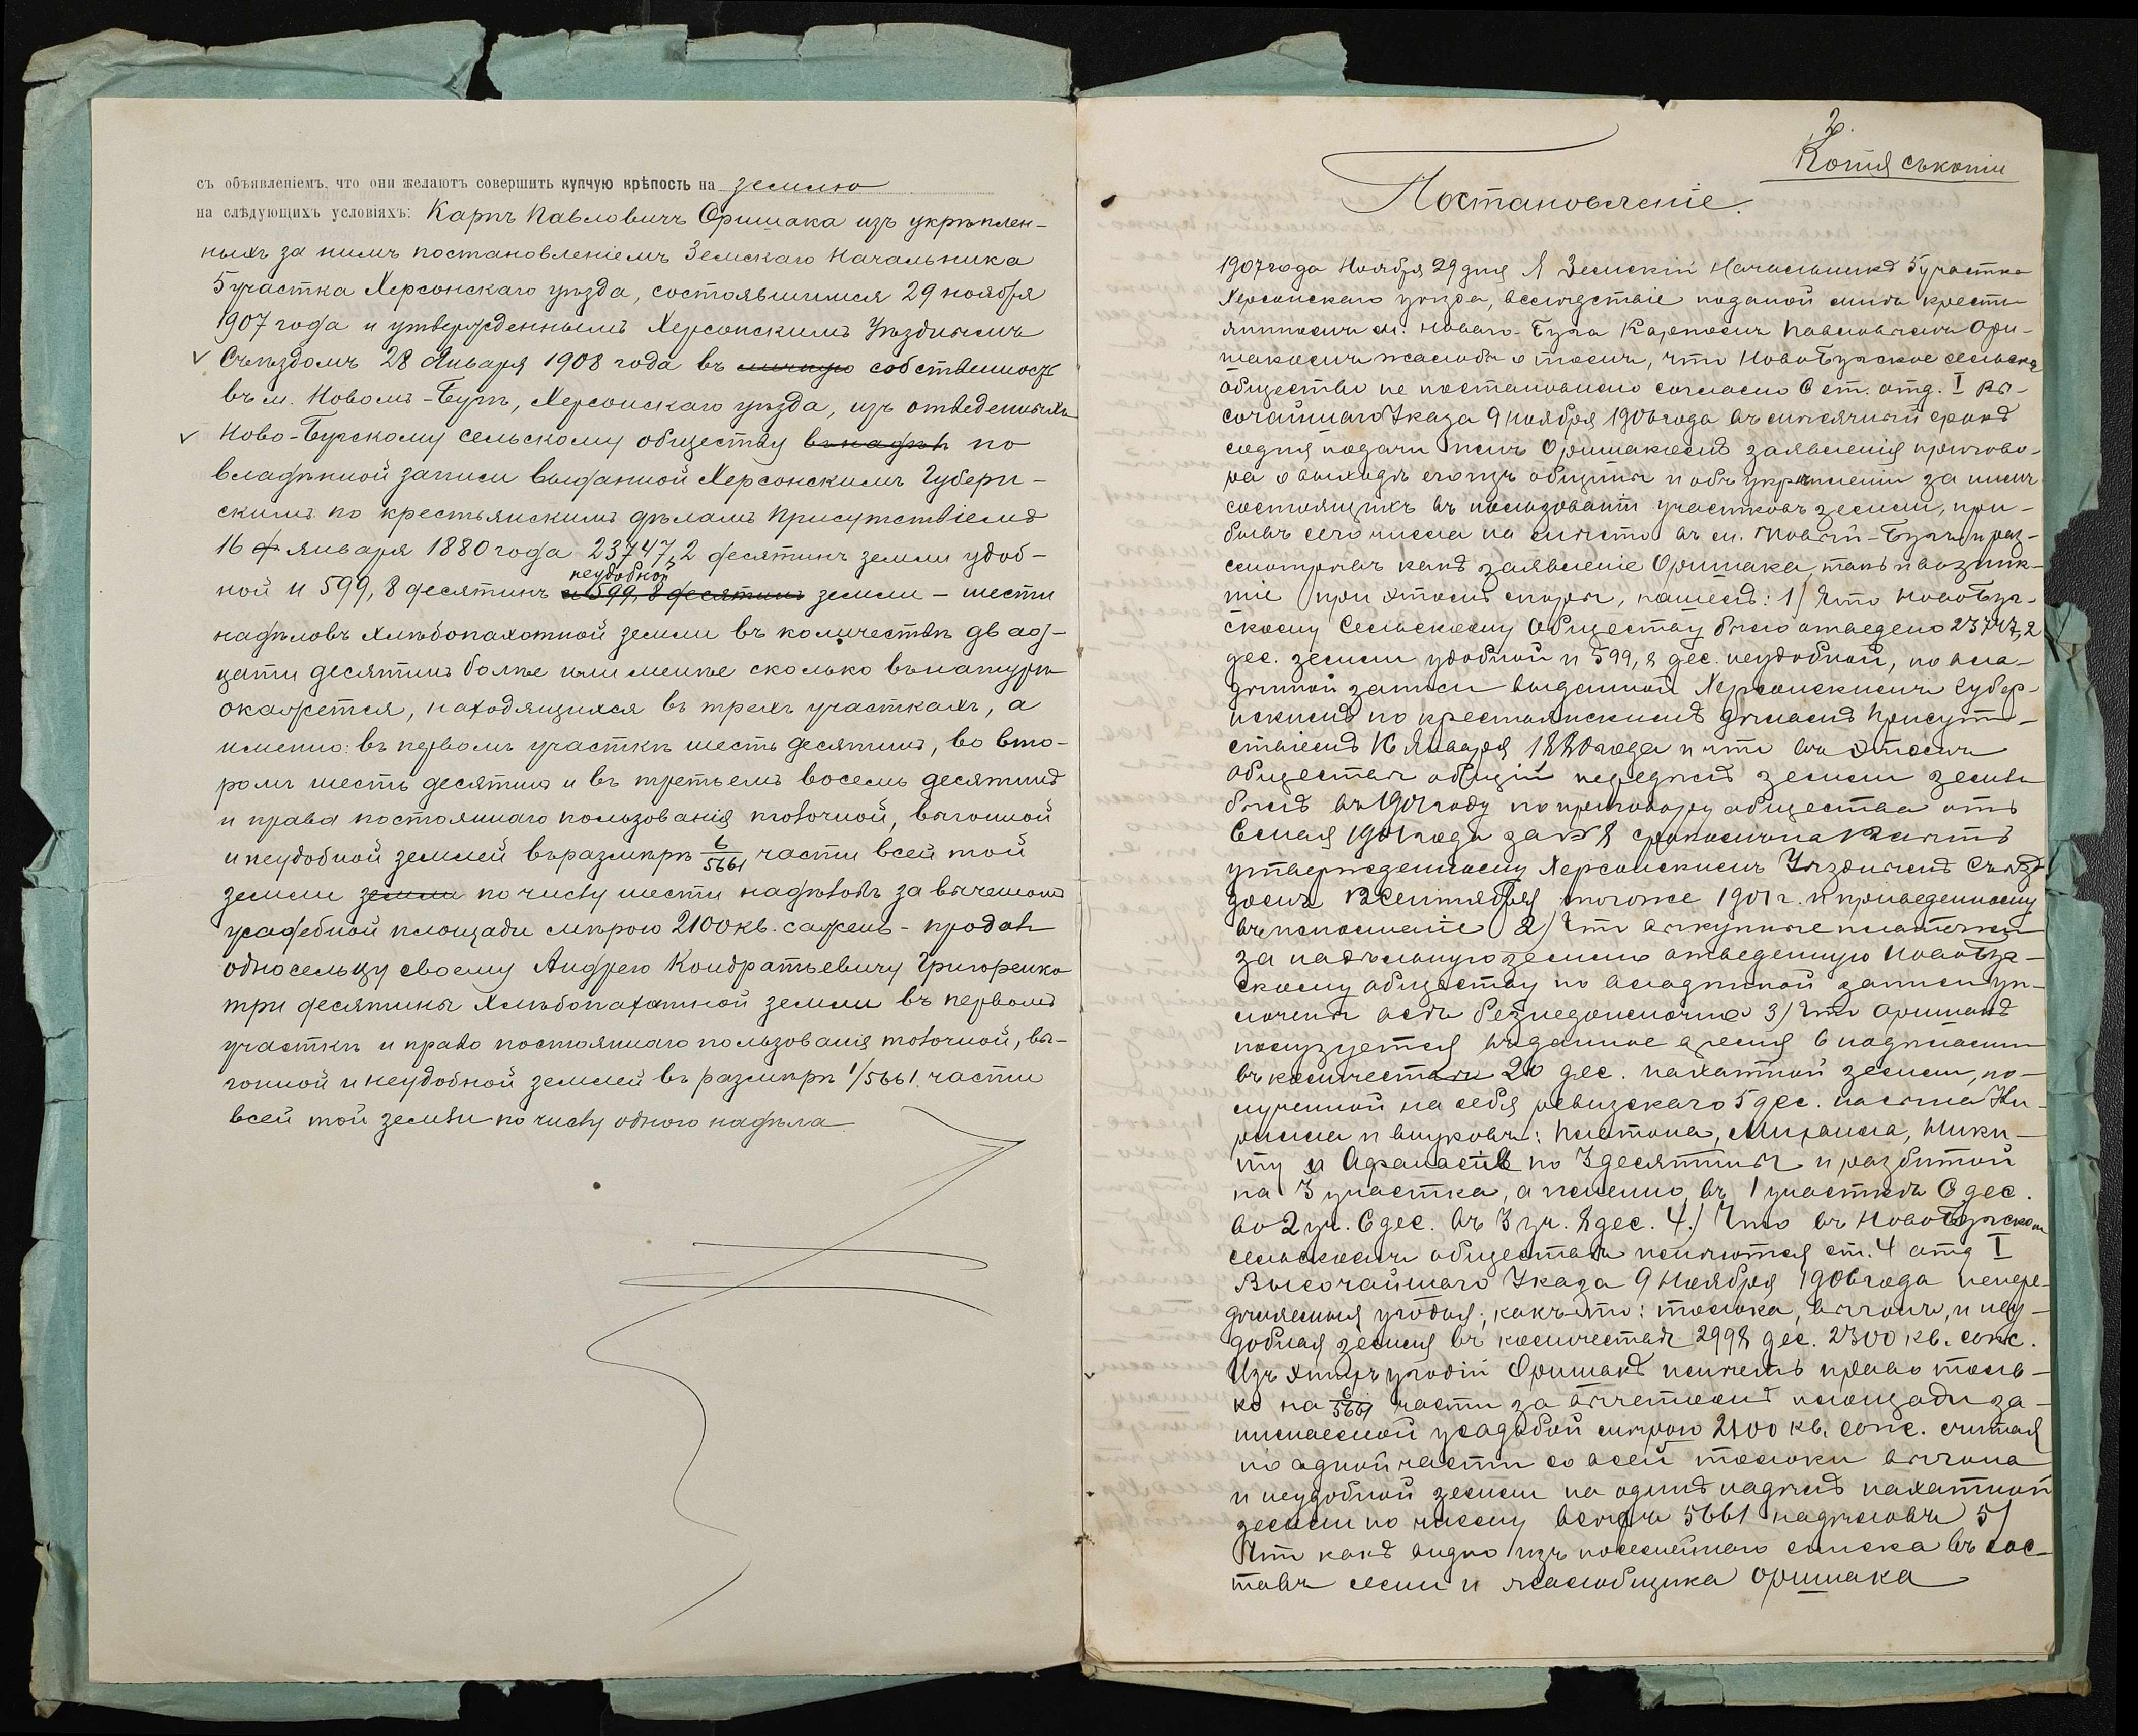 съ объявленіемъ, что они желаютъ совершить купчую крѣпость на землю
на слѣдующихъ условіяхъ: Карпъ Павловичъ Оришака изъ укрѣплен-
ныхъ за нимъ постановленіемъ Земскаго Начальника
5 участка Херсонскаго уѣзда, состоявшимся 29 ноября
1907 года и утвержденнымъ Херсонскимъ Уѣзднымъ
Съѣздомъ 28 Января 1908 года въ личную собственность
въ м. Новомъ-Бугѣ, Херсонскаго уѣзда, изъ отведенныхъ
Ново-Бугскому сельскому обществу въ надѣлъ по
владѣнной записи выданной Херсонскимъ Губерн-
скимъ по крестьянскимъ дѣламъ Присутствіемъ
16 января 1880 года 23747,2 десятинъ земли удоб-
неудобной
ной и 599,8 десятинъ и 599,8 десятинъ земли - шести
надѣловъ хлѣбопахотной земли въ количествѣ двад-
цати десятинъ болѣе или менѣе сколько въ натурѣ
окажется, находящихся въ трехъ участкахъ, а
именно: въ первомъ участкѣ шесть десятинъ, во вто-
ромъ шесть десятинъ и въ третьемъ восемь десятинъ
и права постояннаго пользованія толочной, выгонной
и неудобной землей въ размѣрѣ 6/5661 части всей той
земли земли по числу шести надѣловъ за вычетомъ
усадебной площади мѣрою 2100 кв. сажень - продалъ
односельцу своему Андрею Кондратьевичу Григоренко
три десятины хлѣбопахатной земли въ первомъ
участкѣ и право постояннаго пользованія толочной, вы-
гонной и неудобной землей въ размѣрѣ 1/5661 части
всей той земли по числу одного надѣла
2.
Копія съ копіи
Постановленіе.
1907 года Ноября 29 дня Я Земскій Начальникъ 5 участка
Херсонскаго уѣзда, вслѣдствіе поданой мнѣ крестья
яниномъ м. Новаго-Буга Карпомъ Павловичемъ Ори-
шакомъ жалобы о томъ, что Новобугское сельское
общество не постановило согласно 6 ст. отд. I Вы-
сочайшаго Указа 9 ноября 1906 года въ мѣсячный срокъ
со дня подачи имъ Оришакомъ заявленія пригово-
ра о выходѣ его изъ общины и объ укрѣпленіи за нимъ
состоящихъ въ пользованіи участковъ земли, при-
бывъ сего числа на мѣсто въ м. Новый-Бугъ и раз-
смотрѣвъ какъ заявленіе Оришака, такъ и возник-
шіе при этомъ споры, нашелъ: 1) Что Новобуг-
скому Сельскому Обществу было отведено 23747,2
дес. земли удобной и 599,8 дес. неудобной, по вла-
дѣнной записи выданной Херсонскимъ Губер-
нскимъ по крестьянскимъ дѣламъ Присут-
ствіемъ 16 Января 1880 года и что въ этомъ
обществѣ общій передѣлъ земли
былъ въ 1901 году по приговору общества отъ
6 мая 1901 года за № 8 срокомъ на 12 лѣтъ
утвержденному Херсонскимъ Уѣзднымъ Съѣз-
домъ 12 Сентября того же 1901 г. и приведенному
въ исполненіе 2) Что выкупные платежи
за надѣльную землю отведенную Новобуг-
скому обществу по владѣнной записи уп-
лочены всѣ безнедоимочно 3) Что Оришака
пользуется въ данное время 6 надѣлами
въ количествѣ 20 дес. пахатной земли, по-
лученной на себя ревизскаго 5 дес. на сына Ки-
рилла и внуковъ: Платона, Михаила, Ники-
ту и Афанасія по 3 десятины и разбитой
на 3 участка, а именно, въ 1 участкѣ 6 дес.
во 2 уч. 6 дес. въ 3 уч. 8 дес. 4) Что въ Новобугском
сельскомъ обществѣ имѣются ст. 4 отд I
Высочайшаго Указа 9 Ноября 1906 года непере-
дѣляемыя угодья, какъ то: толока, выгонъ, и неу-
добная земля въ количествѣ 2998 дес. 2300 кв. саж.
Изъ этихъ угодій Оришака имѣетъ право толь-
ко на 6/5661 части за вычетомъ площади за-
нимаемой усадьбой мѣрою 2100 кв. саж. считая
по одной части со всей толоки выгона
и неудобной земли на одинъ надѣлъ пахатной
земли по числу всѣхъ 5661 надѣловъ 5)
Что какъ видно изъ посемейнаго списка въ сос-
тавъ семьи жалобщика Оришака